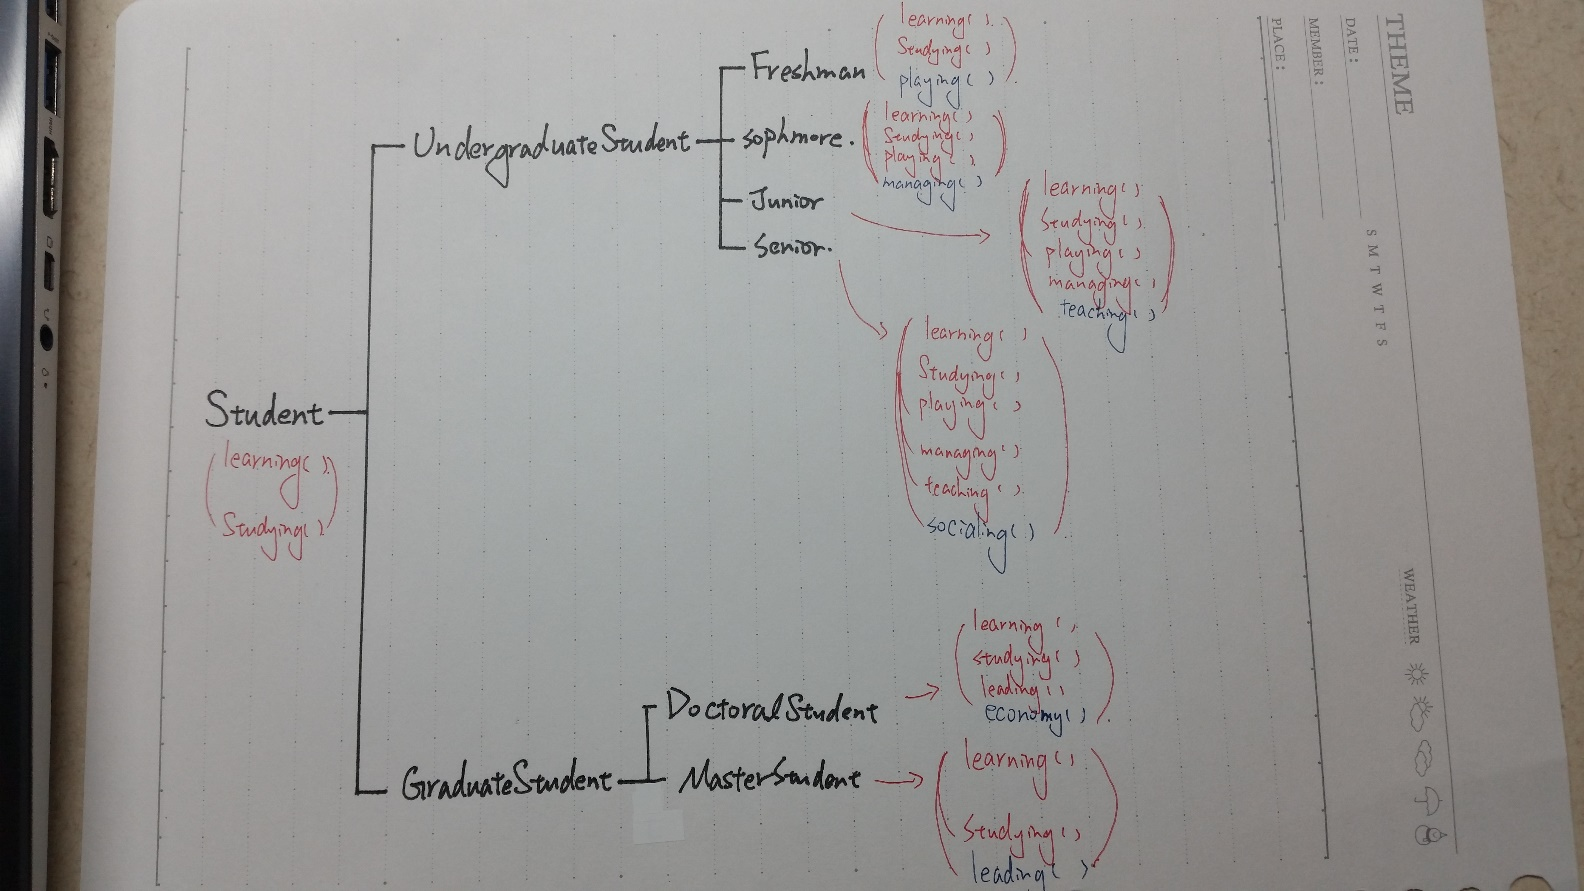 THEME
DATE:
MEMBER:
PLACE:
S M T W T F S
WEATHER
Student
learning( )
Studying( )
UndergraduateStudent
Freshman
learning( )
Studying( )
playing( )
sophmore.
learning( )
Studying( )
playing( )
managing( )
Junior
learning( )
Studying( )
playing( )
managing( )
teaching( )
Senior.
learning( )
Studying( )
playing( )
managing( )
teaching( )
socialing( )
GraduateStudent
DoctoralStudent
learning( )
studying( )
leading( )
economy( )
MasterStudent
learning( )
Studying( )
leading( )